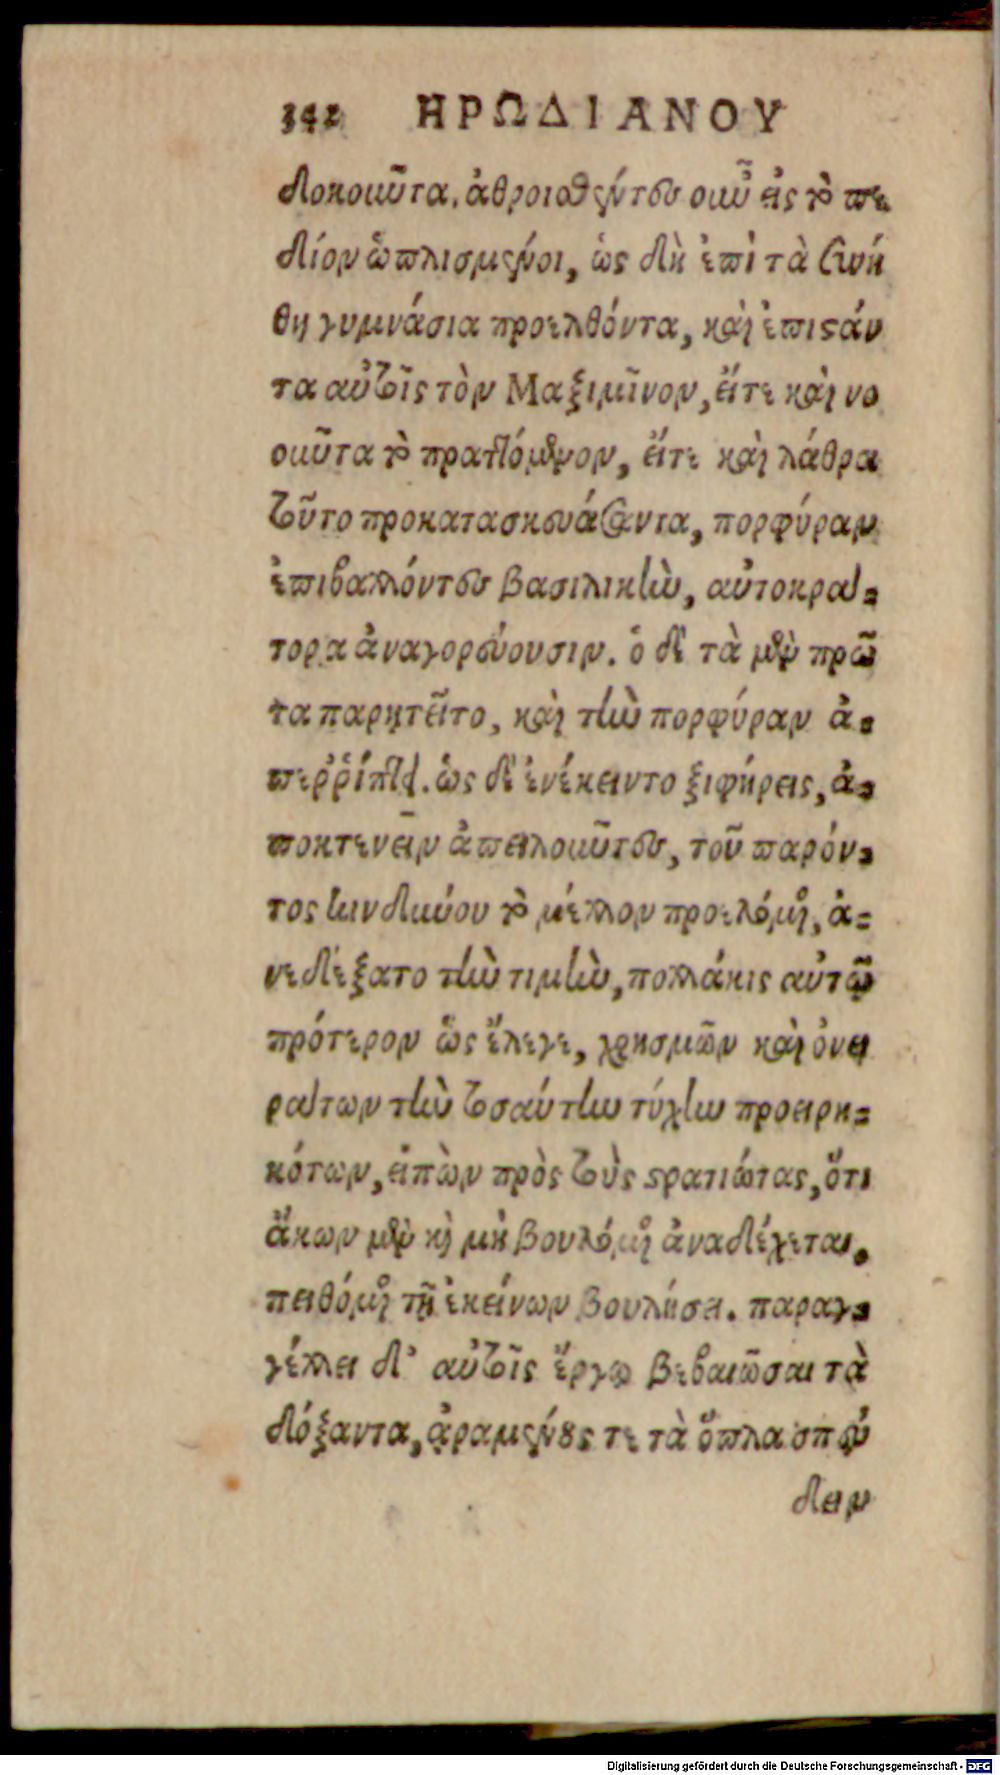 342 ΗΡΩΔΙΑΝΟΥ
δοκοῦντα. ἀθροισθέντες οὖν εἰς τὸ πε
δίον ὡπλισμένοι, ὡς δὴ ἐπὶ τὰ συνή
θη γυμνάσια προελθόντα, καὶ ἐπιστάν
τα αὐτοῖς τὸν Μαξιμῖνον, εἴτε καὶ νο
οῦντα τὸ πραττόμενον, εἴτε καὶ λάθρα
τοῦτο προκατασκευάσαντα, πορφύραν
ἐπιβαλλόντες βασιλικὴν, αὐτοκρά-
τορα ἀναγορεύουσιν. ὁ δὲ τὰ μὲν πρῶ
τα παρῃτεῖτο, καὶ τὴν πορφύραν ἀ-
περρίπτει. ὡς δὲ ἐνέκειντο ξιφήρεις, ἀ-
ποκτενεῖν ἀπειλοῦντες, τοῦ παρόν-
τος κινδύνου τὸ μέλλον προελόμενος, ἀ-
νεδέξατο τὴν τιμὴν, πολλάκις αὐτῷ
πρότερον ὡς ἔλεγε, χρησμῶν καὶ ὀνει
ράτων τὴν τοσαύτην τύχην προειρη-
κότων, εἰπὼν πρὸς τοὺς στρατιώτας, ὅτι
ἄκων μὲν καὶ μὴ βουλόμενος ἀναδέχεται,
πειθόμενος τῇ ἐκείνων βουλήσει. παραγ-
γέλλει δ' αὐτοῖς ἔργῳ βεβαιῶσαι τὰ
δόξαντα, ἀραμένους τε τὰ ὅπλα σπεύ
δειν
Digitalisierung gefördert durch die Deutsche Forschungsgemeinschaft - DFG